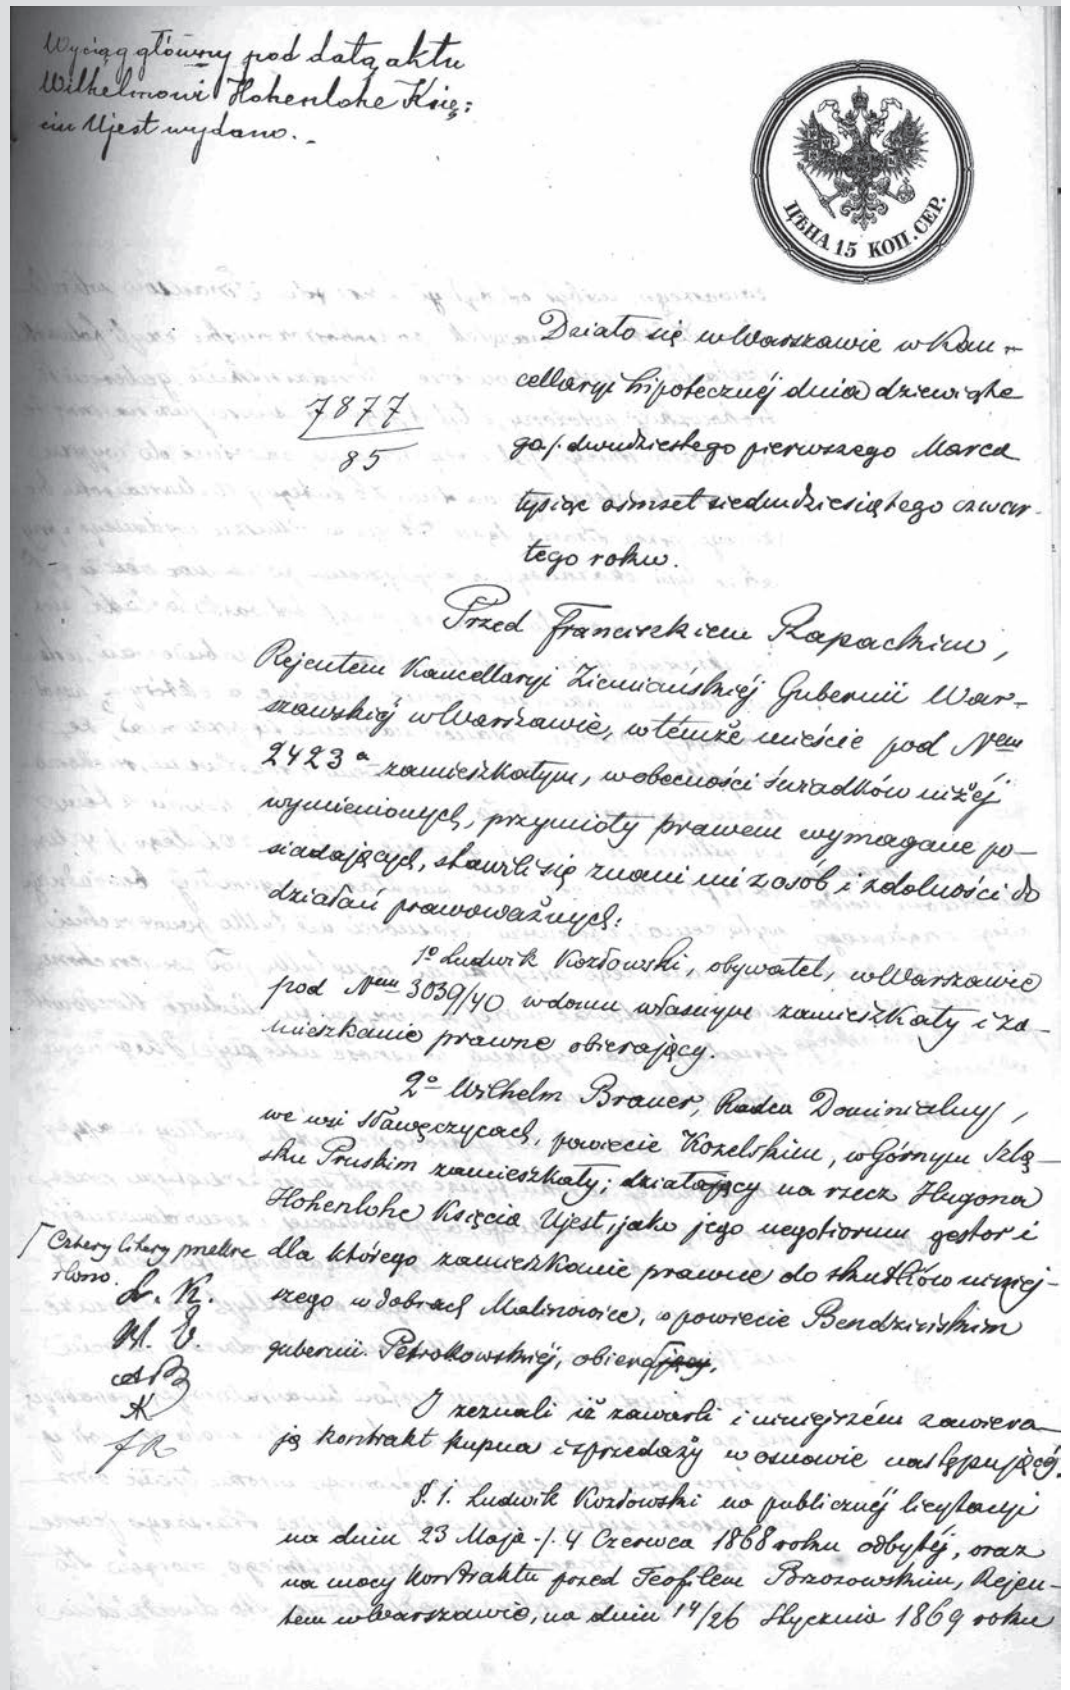 Wyciąg główny pod datą aktu
Wilhelmowi Hohenlohe Księ:
ciu Ujest wydano.
ЦѢНА 15 КОП. СЕР.
Działo się w Warszawie w Kan-
cellaryi hipotecznéj dnia dziewiąte
go /. dwudziestego pierwszego Marca
tysiąc osmset siedmdziesiątego czwar-
tego roku.
7877
85
Przed Franciszkiem Rapackim,
Rejentem Kancellaryi Ziemiańskiéj Gubernii War-
szawskiéj w Warszawie, w témże mieście pod Nem
2423 a zamieszkałym, w obecności świadków niżéj
wymienionych, przymioty prawem wymagane po-
siadających, stawili się znani mi z osób i zdolności do
działań prawoważnych:
1o Ludwik Kozłowski, obywatel, w Warszawie
pod Nem 3039/40 w domu własnym zamieszkały i za-
mieszkanie prawne obierający.
2o Wilhelm Brauer, Radca Dominialny,
we wsi Sławęczycach, powiecie Kozelskim, w Górnym Szlą-
sku Pruskim zamieszkały; działający na rzecz Hugona
Hohenlohe Księcia Ujest, jako jego negotiorum gestor i
dla którego zamieszkanie prawne do skutków niniej-
szego w dobrach Malinowice, w powiecie Bendzińskim
gubernii Petrokowskiéj, obierający,
Cztery litery przekre
ślono.
L. K.
W. B.
AB
fR
I zeznali iż zawarli i niniejszém zawiera-
ją kontrakt kupna i sprzedaży w osnowie następującéj.
§. 1. Ludwik Kozłowski na publicznéj licytacyi
na dniu 23 Maja /. 4 Czerwca 1868 roku odbytéj, oraz
na mocy kontraktu przed Teofilem Brzozowskim, Rejen-
tem w Warszawie, na dniu 14/26 Stycznia 1869 roku